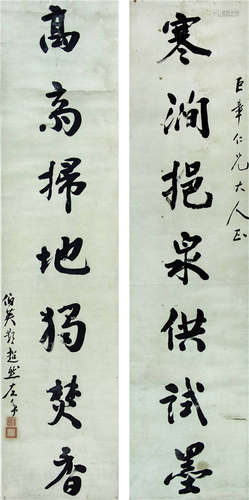 巨章仁兄大人正
寒澗挹泉供試墨
高齋掃地獨焚香
伯英超然左